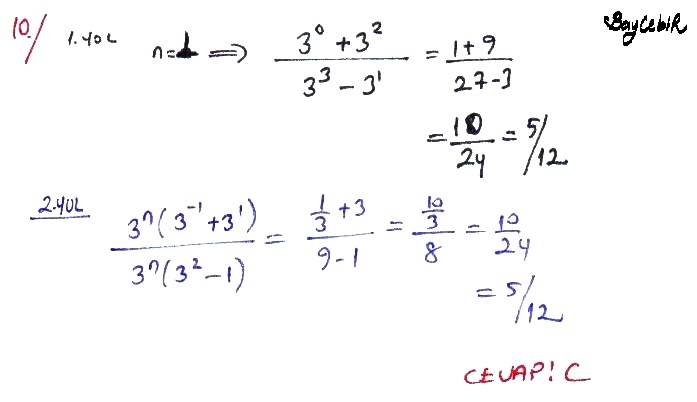 10/ 1.YOL n=1 ⟹ (3^0 + 3^2)/(3^3 − 3^1) = (1+9)/(27-3)
BayCebir
= 10/24 = 5/12
2.YOL 3^n(3^-1 + 3^1)/3^n(3^2 − 1) = (1/3 + 3)/(9-1) = (10/3)/8 = 10/24
= 5/12
CEVAP! C